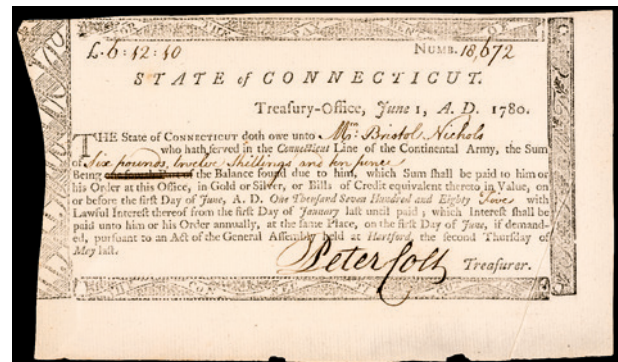 £.6:12:10 NUMB. 18,672
STATE of CONNECTICUT.
Treasury-Office, June 1, A. D. 1780.
THE State of CONNECTICUT doth owe unto Mr. Bristol Nichols
who hath served in the Connecticut Line of the Continental Army, the Sum
of Six pounds, twelve Shillings and ten pence
Being one fourth Part of the Balance found due to him, which Sum shall be paid to him or
his Order at this Office, in Gold or Silver, or Bills of Credit equivalent thereto in Value, on
or before the first Day of June, A. D. One Thousand Seven Hundred and Eighty Five with
Lawful Interest thereof from the first Day of January last until paid; which Interest shall be
paid unto him or his Order annually, at the same Place, on the first Day of June, if demand-
ed, pursuant to an Act of the General Assembly held at Hartford, the second Thursday of
May last.
Peter Colt Treasurer.